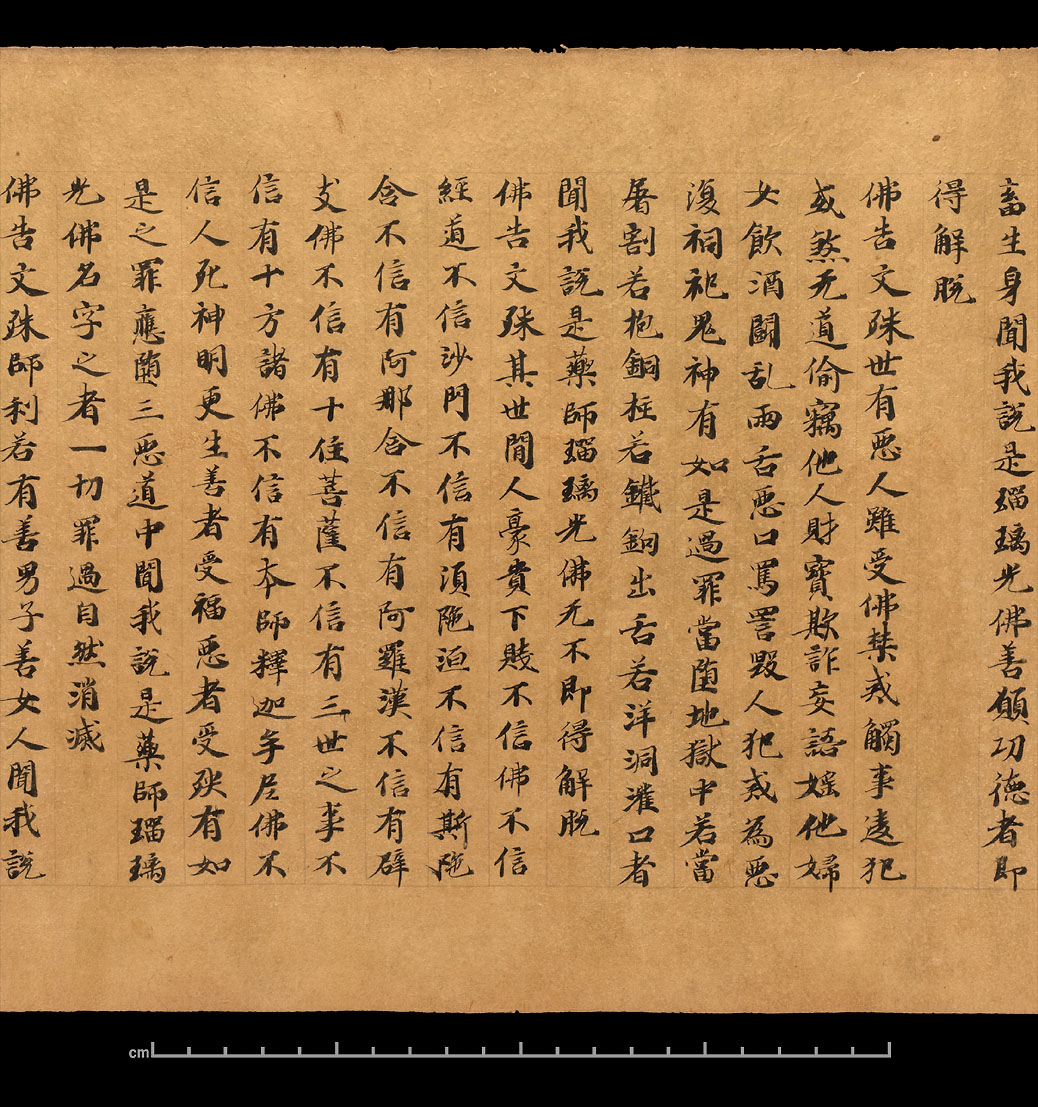 畜生身聞我說是瑠璃光佛善願功德者即
得解脫
佛告文殊世有惡人雖受佛禁戒觸事違犯
或煞无道偷竊他人財寶欺詐妄語婬他婦
女飲酒鬭乱兩舌惡口罵詈毀人犯戒為惡
復祠祀鬼神有如是過罪當墮地獄中若當
屠割若抱銅柱若鐵鉤出舌若洋洞灌口者
聞我說是藥師瑠璃光佛无不即得解脫
佛告文殊其世間人豪貴下賤不信佛不信
經道不信沙門不信有須陁洹不信有斯陁
含不信有阿那含不信有阿羅漢不信有辟
支佛不信有十住菩薩不信有三世之事不
信有十方諸佛不信有本師釋迦牟尼佛不
信人死神明更生善者受福惡者受殃有如
是之罪應墮三惡道中聞我說是藥師瑠璃
光佛名字之者一切罪過自然消滅
佛告文殊師利若有善男子善女人聞我說
cm